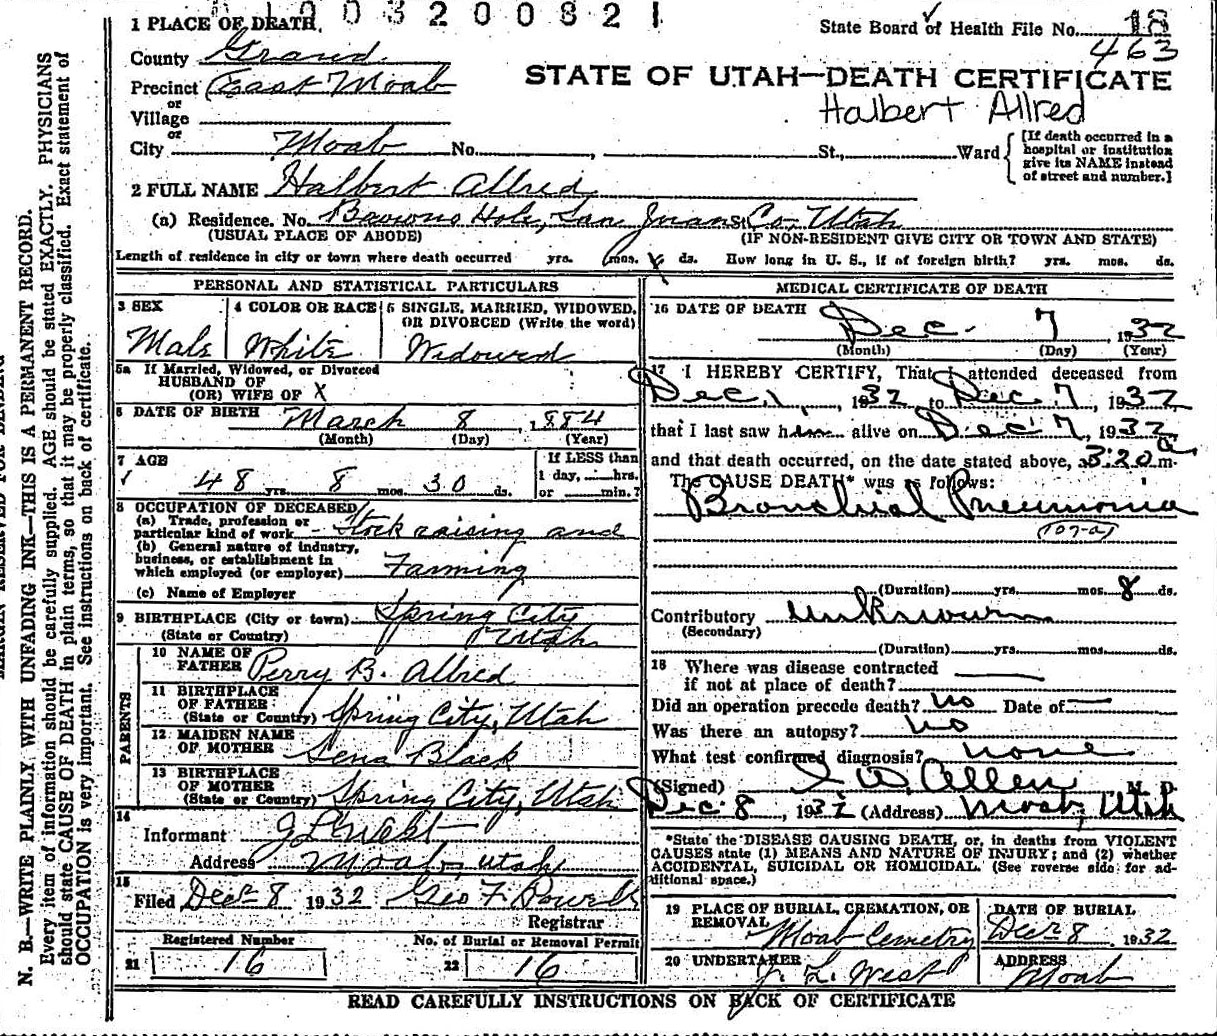 1003200821
1 PLACE OF DEATH
State Board of Health File No. 18
463
County Grand
Precinct East Moab
or
Village
or
City Moab No. , St., Ward
[If death occurred in a
hospital or institution
give its NAME instead
of street and number.]
STATE OF UTAH—DEATH CERTIFICATE
Halbert Allred
2 FULL NAME Halbert Allred
(a) Residence. No. Hole, San Juan St. Co., Utah
(USUAL PLACE OF ABODE) (IF NON-RESIDENT GIVE CITY OR TOWN AND STATE)
Length of residence in city or town where death occurred yrs. mos. ds. How long in U. S., if of foreign birth? yrs. mos. ds.
PERSONAL AND STATISTICAL PARTICULARS
3 SEX 4 COLOR OR RACE 5 SINGLE, MARRIED, WIDOWED,
OR DIVORCED (Write the word)
Male White Widowed
5a If Married, Widowed, or Divorced
HUSBAND OF
(OR) WIFE OF X
6 DATE OF BIRTH March 8, 1884
(Month) (Day) (Year)
7 AGE
48 yrs. 8 mos. 30 ds.
If LESS than
1 day, hrs.
or min.?
8 OCCUPATION OF DECEASED
(a) Trade, profession or
particular kind of work Stock raising and
(b) General nature of industry,
business, or establishment in
which employed (or employer) Farming
(c) Name of Employer
9 BIRTHPLACE (City or town) Spring City
(State or Country) Utah
PARENTS
10 NAME OF
FATHER Perry B. Allred
11 BIRTHPLACE
OF FATHER
(State or Country) Spring City, Utah
12 MAIDEN NAME
OF MOTHER Sena Black
13 BIRTHPLACE
OF MOTHER
(State or Country) Spring City, Utah
14
Informant J L West
Address Moab, Utah
15
Filed Dec 8 1932 Geo F. Powell
Registrar
Registered Number No. of Burial or Removal Permit
21 16 22 16
MEDICAL CERTIFICATE OF DEATH
16 DATE OF DEATH
Dec. 7, 1932
(Month) (Day) (Year)
17 I HEREBY CERTIFY, That I attended deceased from
Dec. 1, 1932 to Dec. 7, 1932
that I last saw him alive on Dec 7, 1932
and that death occurred, on the date stated above, at 3:20 a m.
The CAUSE DEATH* was as follows:
Bronchial Pneumonia
(107-a)
(Duration) yrs. mos. 8 ds.
Contributory Unknown
(Secondary)
(Duration) yrs. mos. ds.
18 Where was disease contracted
if not at place of death?
Did an operation precede death? no Date of —
Was there an autopsy? no
What test confirmed diagnosis? none
(Signed) I. W. Allen M. D.
Dec. 8, 1932 (Address) Moab, Utah
*State the DISEASE CAUSING DEATH, or, in deaths from VIOLENT
CAUSES state (1) MEANS AND NATURE OF INJURY; and (2) whether
ACCIDENTAL, SUICIDAL OR HOMICIDAL. (See reverse side for ad-
ditional space.)
19 PLACE OF BURIAL, CREMATION, OR
REMOVAL
Moab Cemetry
DATE OF BURIAL
Dec 8 1932
20 UNDERTAKER J. L. West
ADDRESS Moab
READ CAREFULLY INSTRUCTIONS ON BACK OF CERTIFICATE
N. B.—WRITE PLAINLY, WITH UNFADING INK—THIS IS A PERMANENT RECORD.
Every item of information should be carefully supplied. AGE should be stated EXACTLY. PHYSICIANS
should state CAUSE OF DEATH in plain terms, so that it may be properly classified. Exact statement of
OCCUPATION is very important. See instructions on back of certificate.